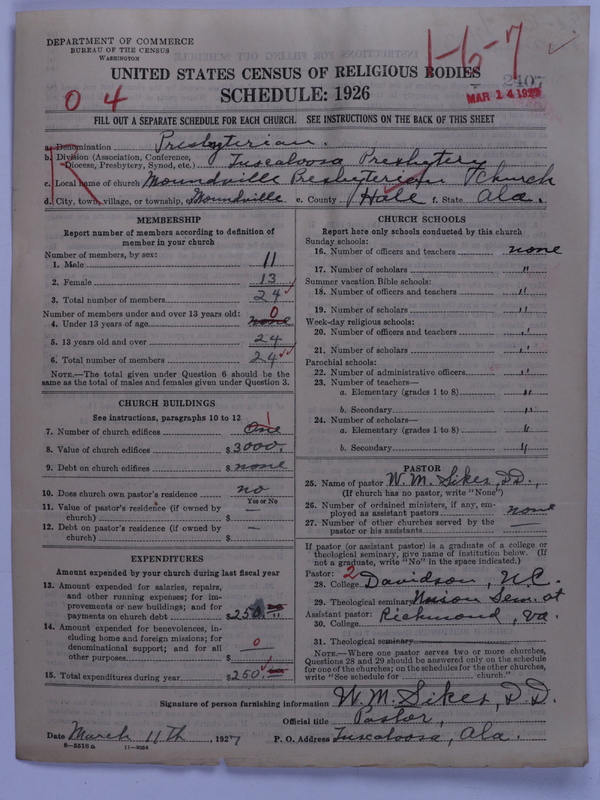 DEPARTMENT OF COMMERCE
BUREAU OF THE CENSUS
WASHINGTON
1-6-7
2407
MAR 14 1927
UNITED STATES CENSUS OF RELIGIOUS BODIES
SCHEDULE: 1926
0 4
FILL OUT A SEPARATE SCHEDULE FOR EACH CHURCH. SEE INSTRUCTIONS ON THE BACK OF THIS SHEET
R
a. Denomination Presbyterian.
b. Division (Association, Conference, Diocese, Presbytery, Synod, etc.) Tuscaloosa Presbytery
c. Local name of church Moundville Presbyterian Church
d. City, town, village, or township, Moundville e. County Hale f. State Ala.
MEMBERSHIP
Report number of members according to definition of
member in your church
Number of members, by sex:
1. Male 11
2. Female 13
3. Total number of members 24
Number of members under and over 13 years old: 0
4. Under 13 years of age none
5. 13 years old and over 24
6. Total number of members 24
NOTE.—The total given under Question 6 should be the
same as the total of males and females given under Question 3.
CHURCH BUILDINGS
See instructions, paragraphs 10 to 12
1
7. Number of church edifices One
8. Value of church edifices $ 3000.
9. Debt on church edifices $ none
10. Does church own pastor's residence no
Yes or No
11. Value of pastor's residence (if owned by
church) $ —
12. Debt on pastor's residence (if owned by
church) $ —
EXPENDITURES
Amount expended by your church during last fiscal year
13. Amount expended for salaries, repairs,
and other running expenses; for im-
provements or new buildings; and for
payments on church debt $ 250.
14. Amount expended for benevolences, in-
cluding home and foreign missions; for
denominational support; and for all
other purposes 0
15. Total expenditures during year $ 250.
CHURCH SCHOOLS
Report here only schools conducted by this church
Sunday schools:
16. Number of officers and teachers none
17. Number of scholars "
Summer vacation Bible schools:
18. Number of officers and teachers "
19. Number of scholars "
Week-day religious schools:
20. Number of officers and teachers "
21. Number of scholars "
Parochial schools:
22. Number of administrative officers "
23. Number of teachers—
a. Elementary (grades 1 to 8) "
b. Secondary "
24. Number of scholars—
a. Elementary (grades 1 to 8) "
b. Secondary "
PASTOR
25. Name of pastor W. M. Sikes, D.D.,
(If church has no pastor, write "None")
26. Number of ordained ministers, if any, em-
ployed as assistant pastors none
27. Number of other churches served by the
pastor or his assistants —
If pastor (or assistant pastor) is a graduate of a college or
theological seminary, give name of institution below. (If
not a graduate, write "No" in the space indicated.)
Pastor: 2
28. College Davidson, N.C.
29. Theological seminary Union Sem. at
Assistant pastor: Richmond, Va.
30. College
31. Theological seminary
NOTE.—Where one pastor serves two or more churches,
Questions 28 and 29 should be answered only on the schedule
for one of the churches; on the schedules for the other churches,
write "See schedule for church."
Signature of person furnishing information W. M. Sikes, D.D.
Official title Pastor,
Date March 11th, 1927 P. O. Address Tuscaloosa, Ala.
8-5516a 11-9054